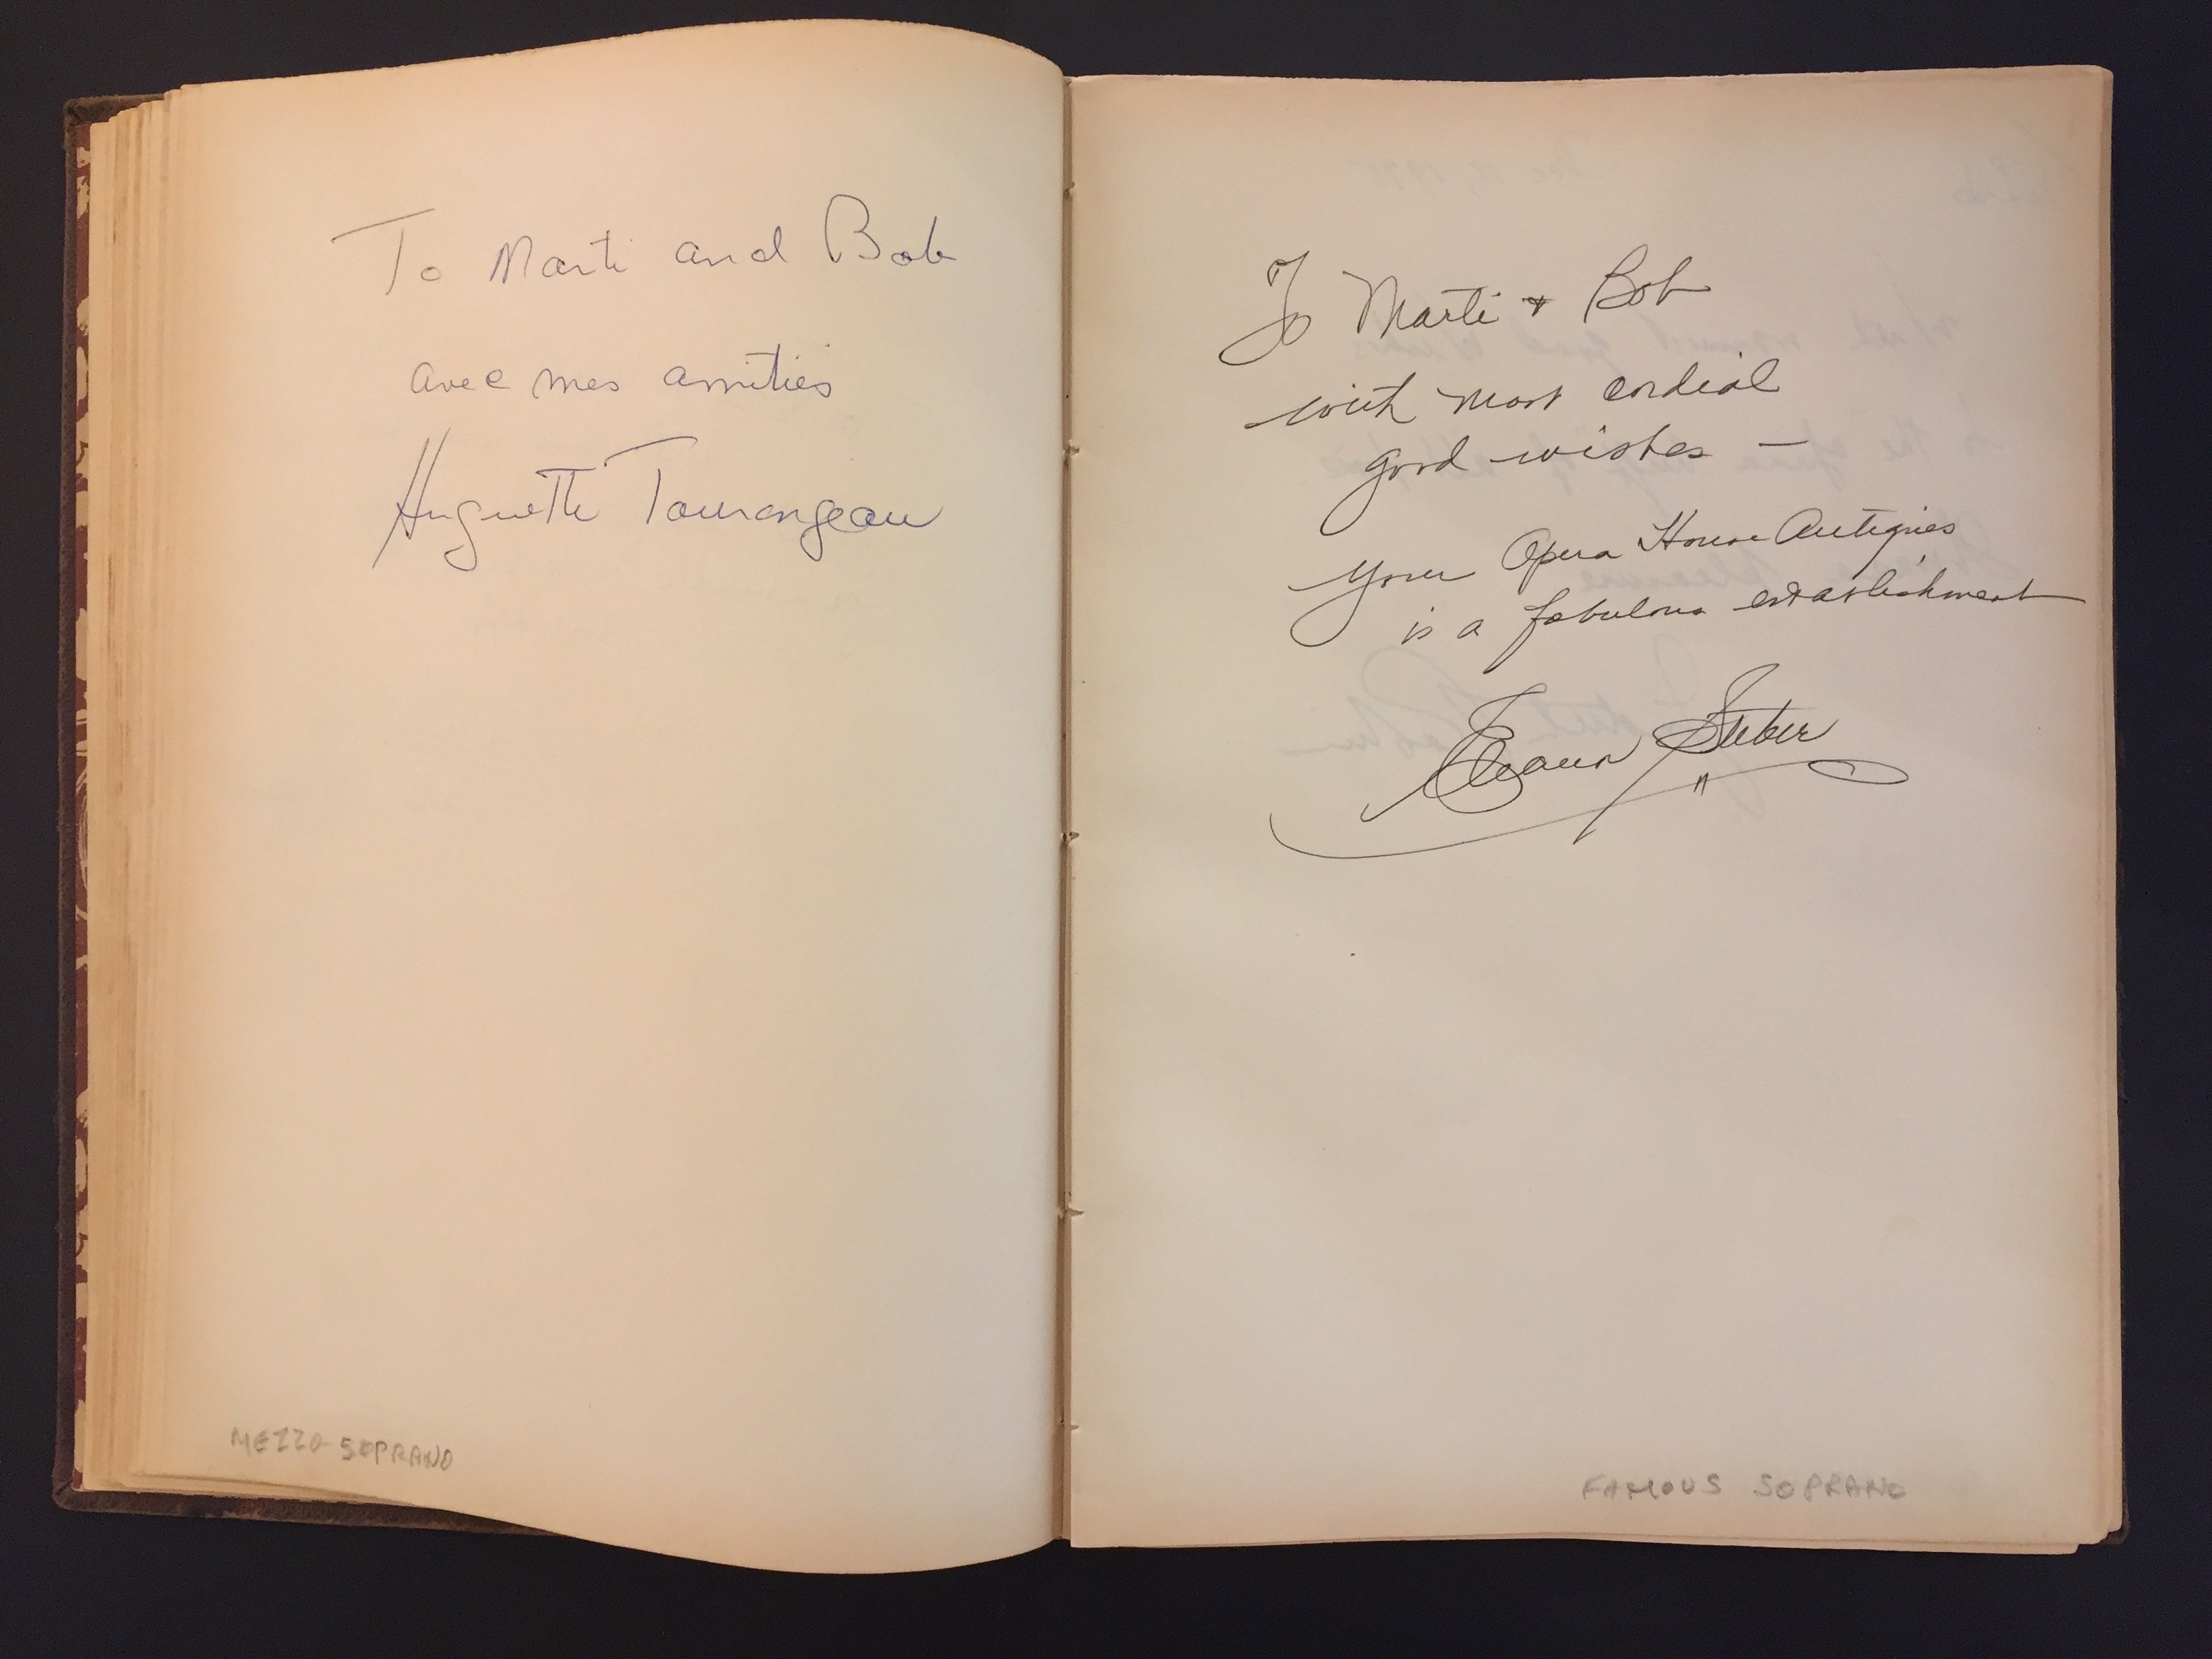 To Marti and Bob
avec mes amitiés
Huguette Tourangeau
MEZZO-SOPRANO
To Marti + Bob
with most cordial
good wishes —
your Opera House Antiques
is a fabulous establishment
Eleanor Steber
FAMOUS SOPRANO